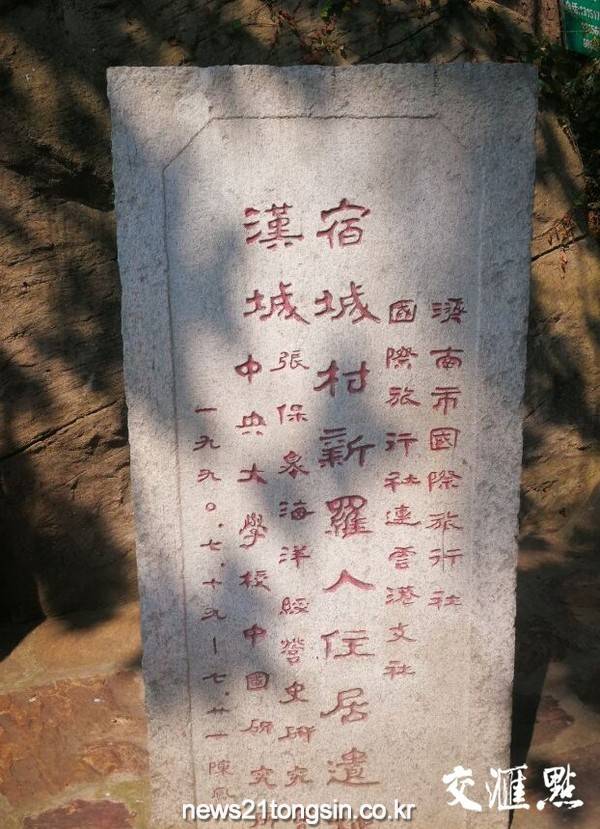 濟南市國際旅行社
國際旅行社連雲港支社
宿城村新羅人住居遺
漢城
張保皐海洋經營史研究
中央大學校中國研究
一九九〇.七.十九—七.廿一 陳
交滙點
news21tongsin.co.kr